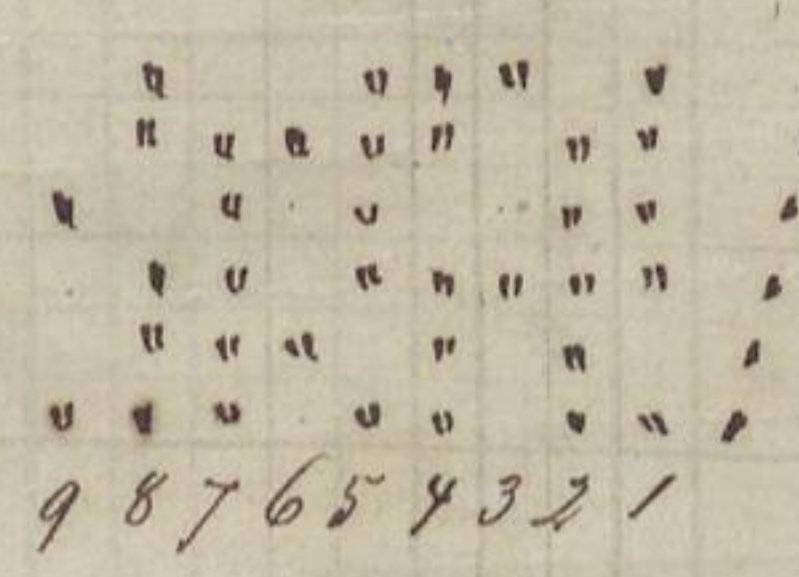 " " " " "
" " " " " " "
" " " " "
" " " " " " "
" " " " "
" " " " " " "
9 8 7 6 5 4 3 2 1